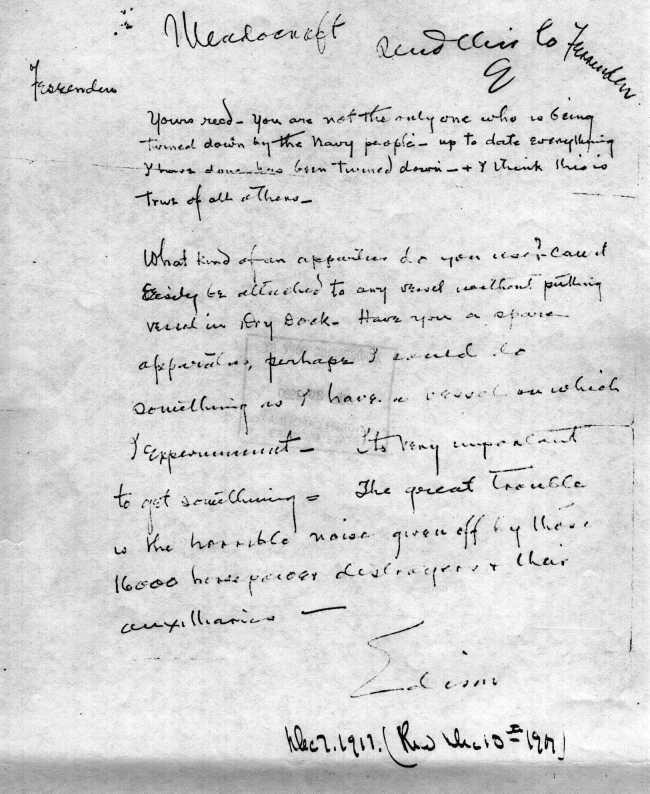 Meadowcroft Send this to Fessenden
E
Fessenden
Yours recd – You are not the only one who is being
turned down by the Navy people – up to date everything
I have done has been turned down – + I think this is
true of all others –
What kind of an apparatus do you use? – can it
Easily be attached to any vessel without putting
vessel in Dry Dock – Have you a spare
apparatus, perhaps I could do
something as I have a vessel on which
I Experimment – Its very important
to get something = The great trouble
is the horrible noise given off by those
16000 horsepower destroyers + their
auxilliaries —
Edison
Dec 7. 1917. (Recd Dec 10th 1917)